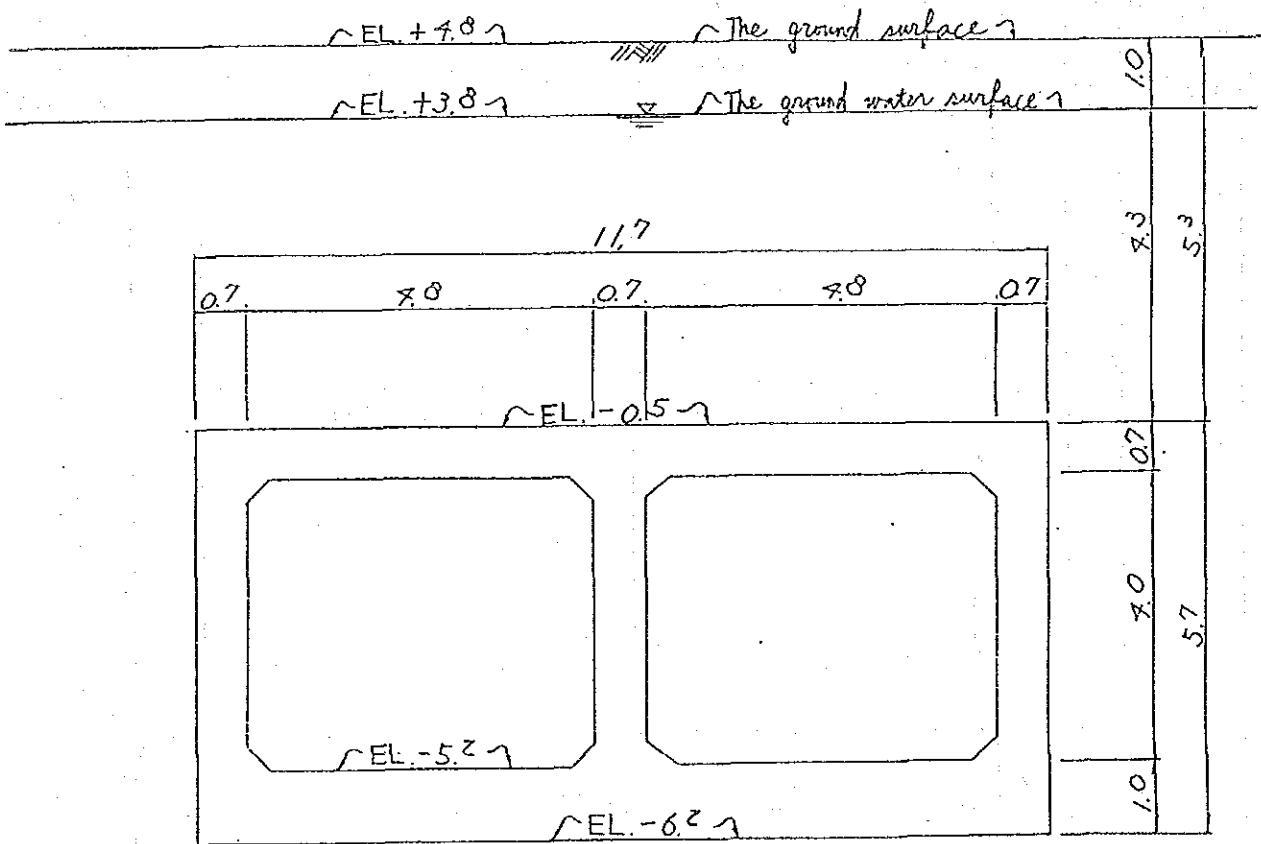 EL. +4.8 The ground surface
1.0
EL. +3.8 The ground water surface
4.3 5.3
11.7
0.7 4.8 0.7 4.8 0.7
EL. -0.5
0.7
4.0 5.7
EL. -5.2
1.0
EL. -6.2